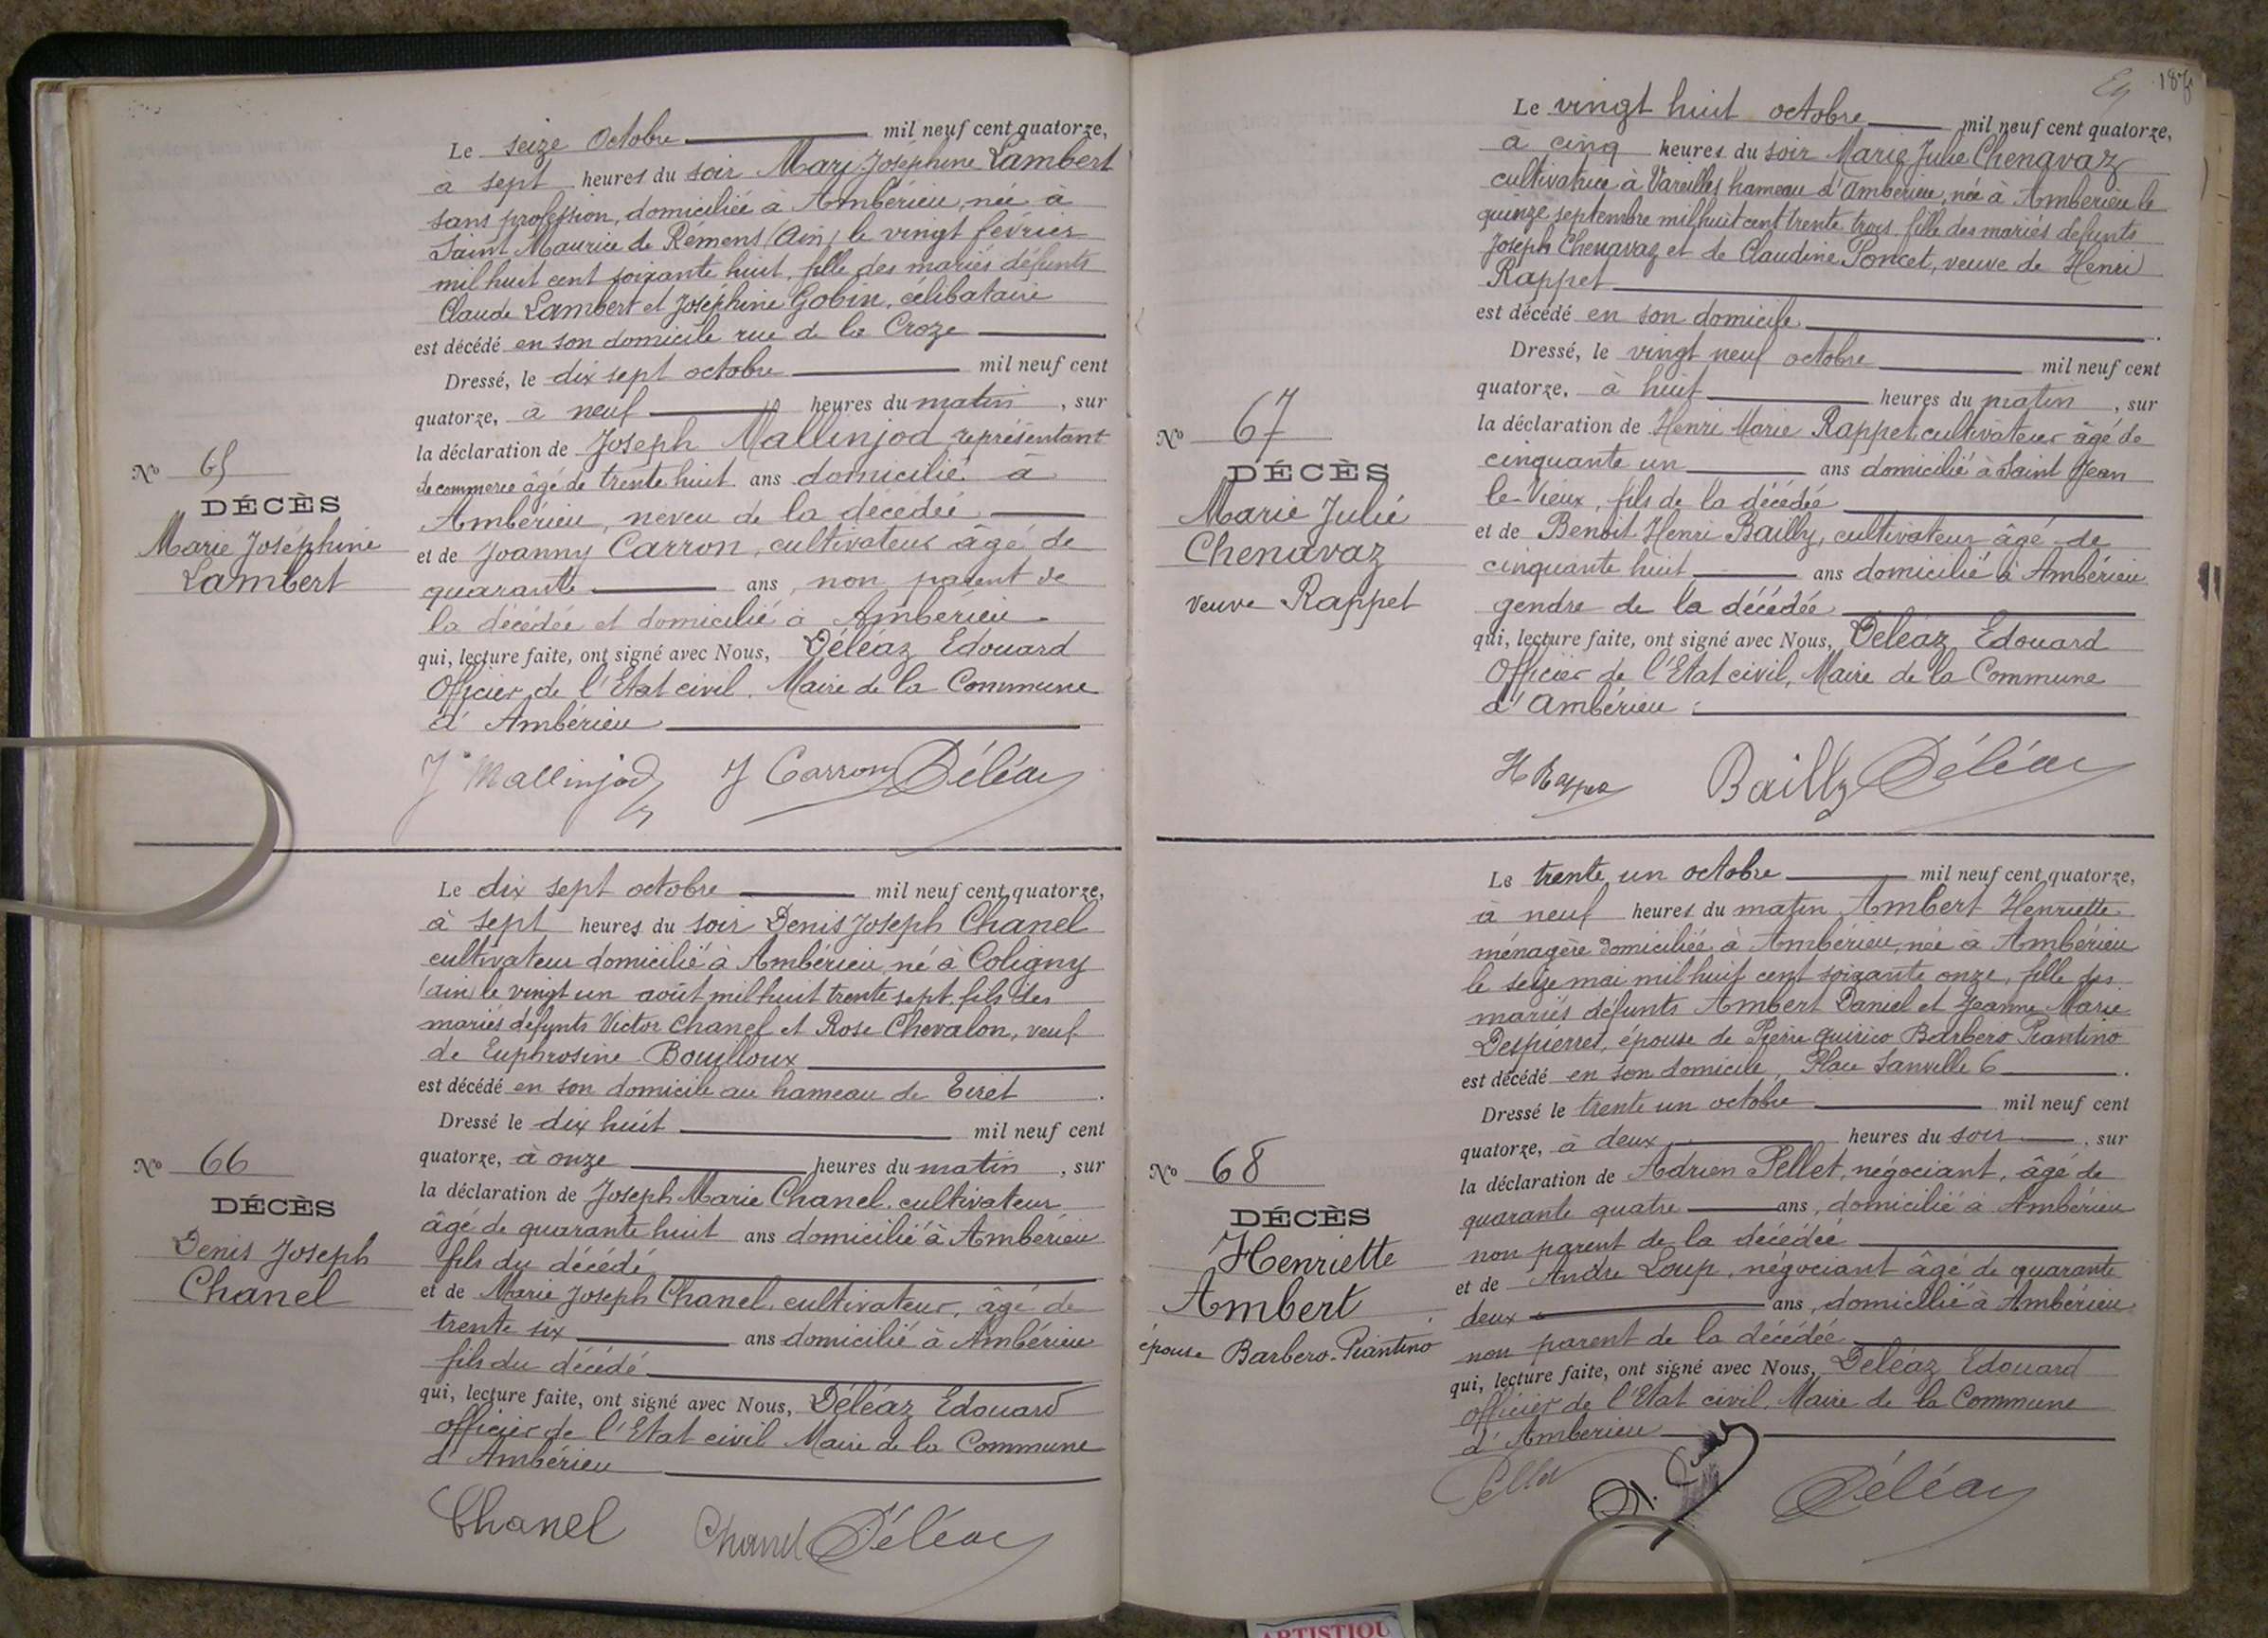 Le seize Octobre mil neuf cent quatorze,
à sept heures du soir Marie Joséphine Lambert
sans profession, domiciliée à Ambérieu, née à
Saint Maurice de Rémens (Ain) le vingt février
mil huit cent soixante huit, fille des mariés défunts
Claude Lambert et Joséphine Gobin, célibataire
est décédé en son domicile rue de la Croze
Dressé, le dix sept octobre mil neuf cent
quatorze, à neuf heures du matin, sur
la déclaration de Joseph Mallinjod représentant
de commerce âgé de trente huit ans domicilié à
Ambérieu, neveu de la décédée
et de Joanny Carron, cultivateur âgé de
quarante ans, non parent de
la décédée et domicilié à Ambérieu
qui, lecture faite, ont signé avec Nous, Déléaz Edouard
Officier de l'Etat civil, Maire de la Commune
d'Ambérieu
No 65
DÉCÈS
Marie Joséphine
Lambert
J Mallinjod J Carron Déléaz
Le dix sept octobre mil neuf cent quatorze,
à sept heures du soir Denis Joseph Chanel
cultivateur domicilié à Ambérieu, né à Coligny
(ain) le vingt un août mil huit trente sept, fils des
mariés défunts Victor Chanel et Rose Chevalon, veuf
de Euphrosine Bouilloux
est décédé en son domicile au hameau de Tiret.
Dressé le dix huit mil neuf cent
quatorze, à onze heures du matin, sur
la déclaration de Joseph Marie Chanel, cultivateur
âgé de quarante huit ans domicilié à Ambérieu
fils du décédé
et de Marie Joseph Chanel, cultivateur, âgé de
trente six ans domicilié à Ambérieu
fils du décédé
qui, lecture faite, ont signé avec Nous, Déléaz Edouard
officier de l'Etat civil Maire de la Commune
d'Ambérieu
No 66
DÉCÈS
Denis Joseph
Chanel
Chanel Chanel Déléaz
Le vingt huit octobre mil neuf cent quatorze,
à cinq heures du soir Marie Julie Chenavaz
cultivatrice à Vareilles hameau d'Ambérieu, née à Ambérieu le
quinze septembre mil huit cent trente trois, fille des mariés défunts
Joseph Chenavaz et de Claudine Poncet, veuve de Henri
Rappet
est décédé en son domicile.
Dressé, le vingt neuf octobre mil neuf cent
quatorze, à huit heures du matin, sur
la déclaration de Henri Marie Rappet, cultivateur âgé de
cinquante un ans domicilié à Saint Jean
le-Vieux, fils de la décédée
et de Benoit Henri Bailly, cultivateur âgé de
cinquante huit ans domicilié à Ambérieu
gendre de la décédée
qui, lecture faite, ont signé avec Nous, Déléaz Edouard
Officier de l'Etat civil, Maire de la Commune
d'Ambérieu :
No 67
DÉCÈS
Marie Julie
Chenavaz
veuve Rappet
H Rappet Bailly Déléaz
Le trente un octobre mil neuf cent quatorze,
à neuf heures du matin Ambert Henriette
ménagère domiciliée à Ambérieu, née à Ambérieu
le seize mai mil huit cent soixante onze, fille des
mariés défunts Ambert Daniel et Jeanne Marie
Despierres, épouse de Pierre Quirico Barbero Piantino
est décédé en son domicile, Place Sanville 6.
Dressé le trente un octobre mil neuf cent
quatorze, à deux heures du soir, sur
la déclaration de Adrien Pellet, négociant, âgé de
quarante quatre ans, domicilié à Ambérieu
non parent de la décédée
et de André Loup, négociant âgé de quarante
deux ans, domicilié à Ambérieu
non parent de la décédée
qui, lecture faite, ont signé avec Nous, Déléaz Edouard
officier de l'Etat civil, Maire de la Commune
d'Ambérieu
No 68
DÉCÈS
Henriette
Ambert
épouse Barbero-Piantino
Pellet Déléaz
ARTISTIQU